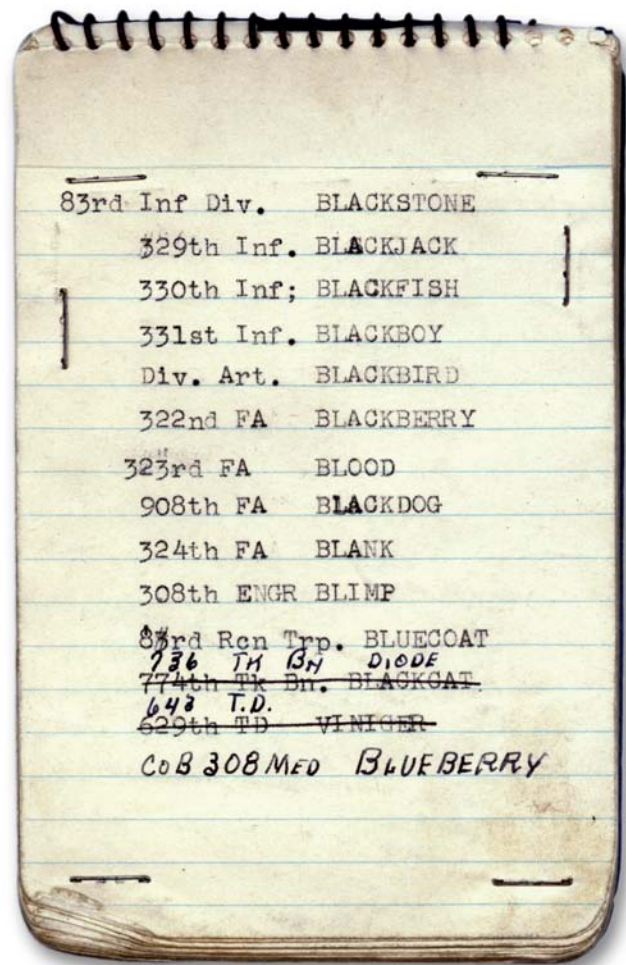 83rd Inf Div. BLACKSTONE
329th Inf. BLACKJACK
330th Inf; BLACKFISH
331st Inf. BLACKBOY
Div. Art. BLACKBIRD
322nd FA BLACKBERRY
323rd FA BLOOD
908th FA BLACKDOG
324th FA BLANK
308th ENGR BLIMP
83rd Rcn Trp. BLUECOAT
736 TK BN DIODE
774th Tk Bn. BLACKCAT
643 T.D.
629th TD VINIGER
CO B 308 MED BLUEBERRY